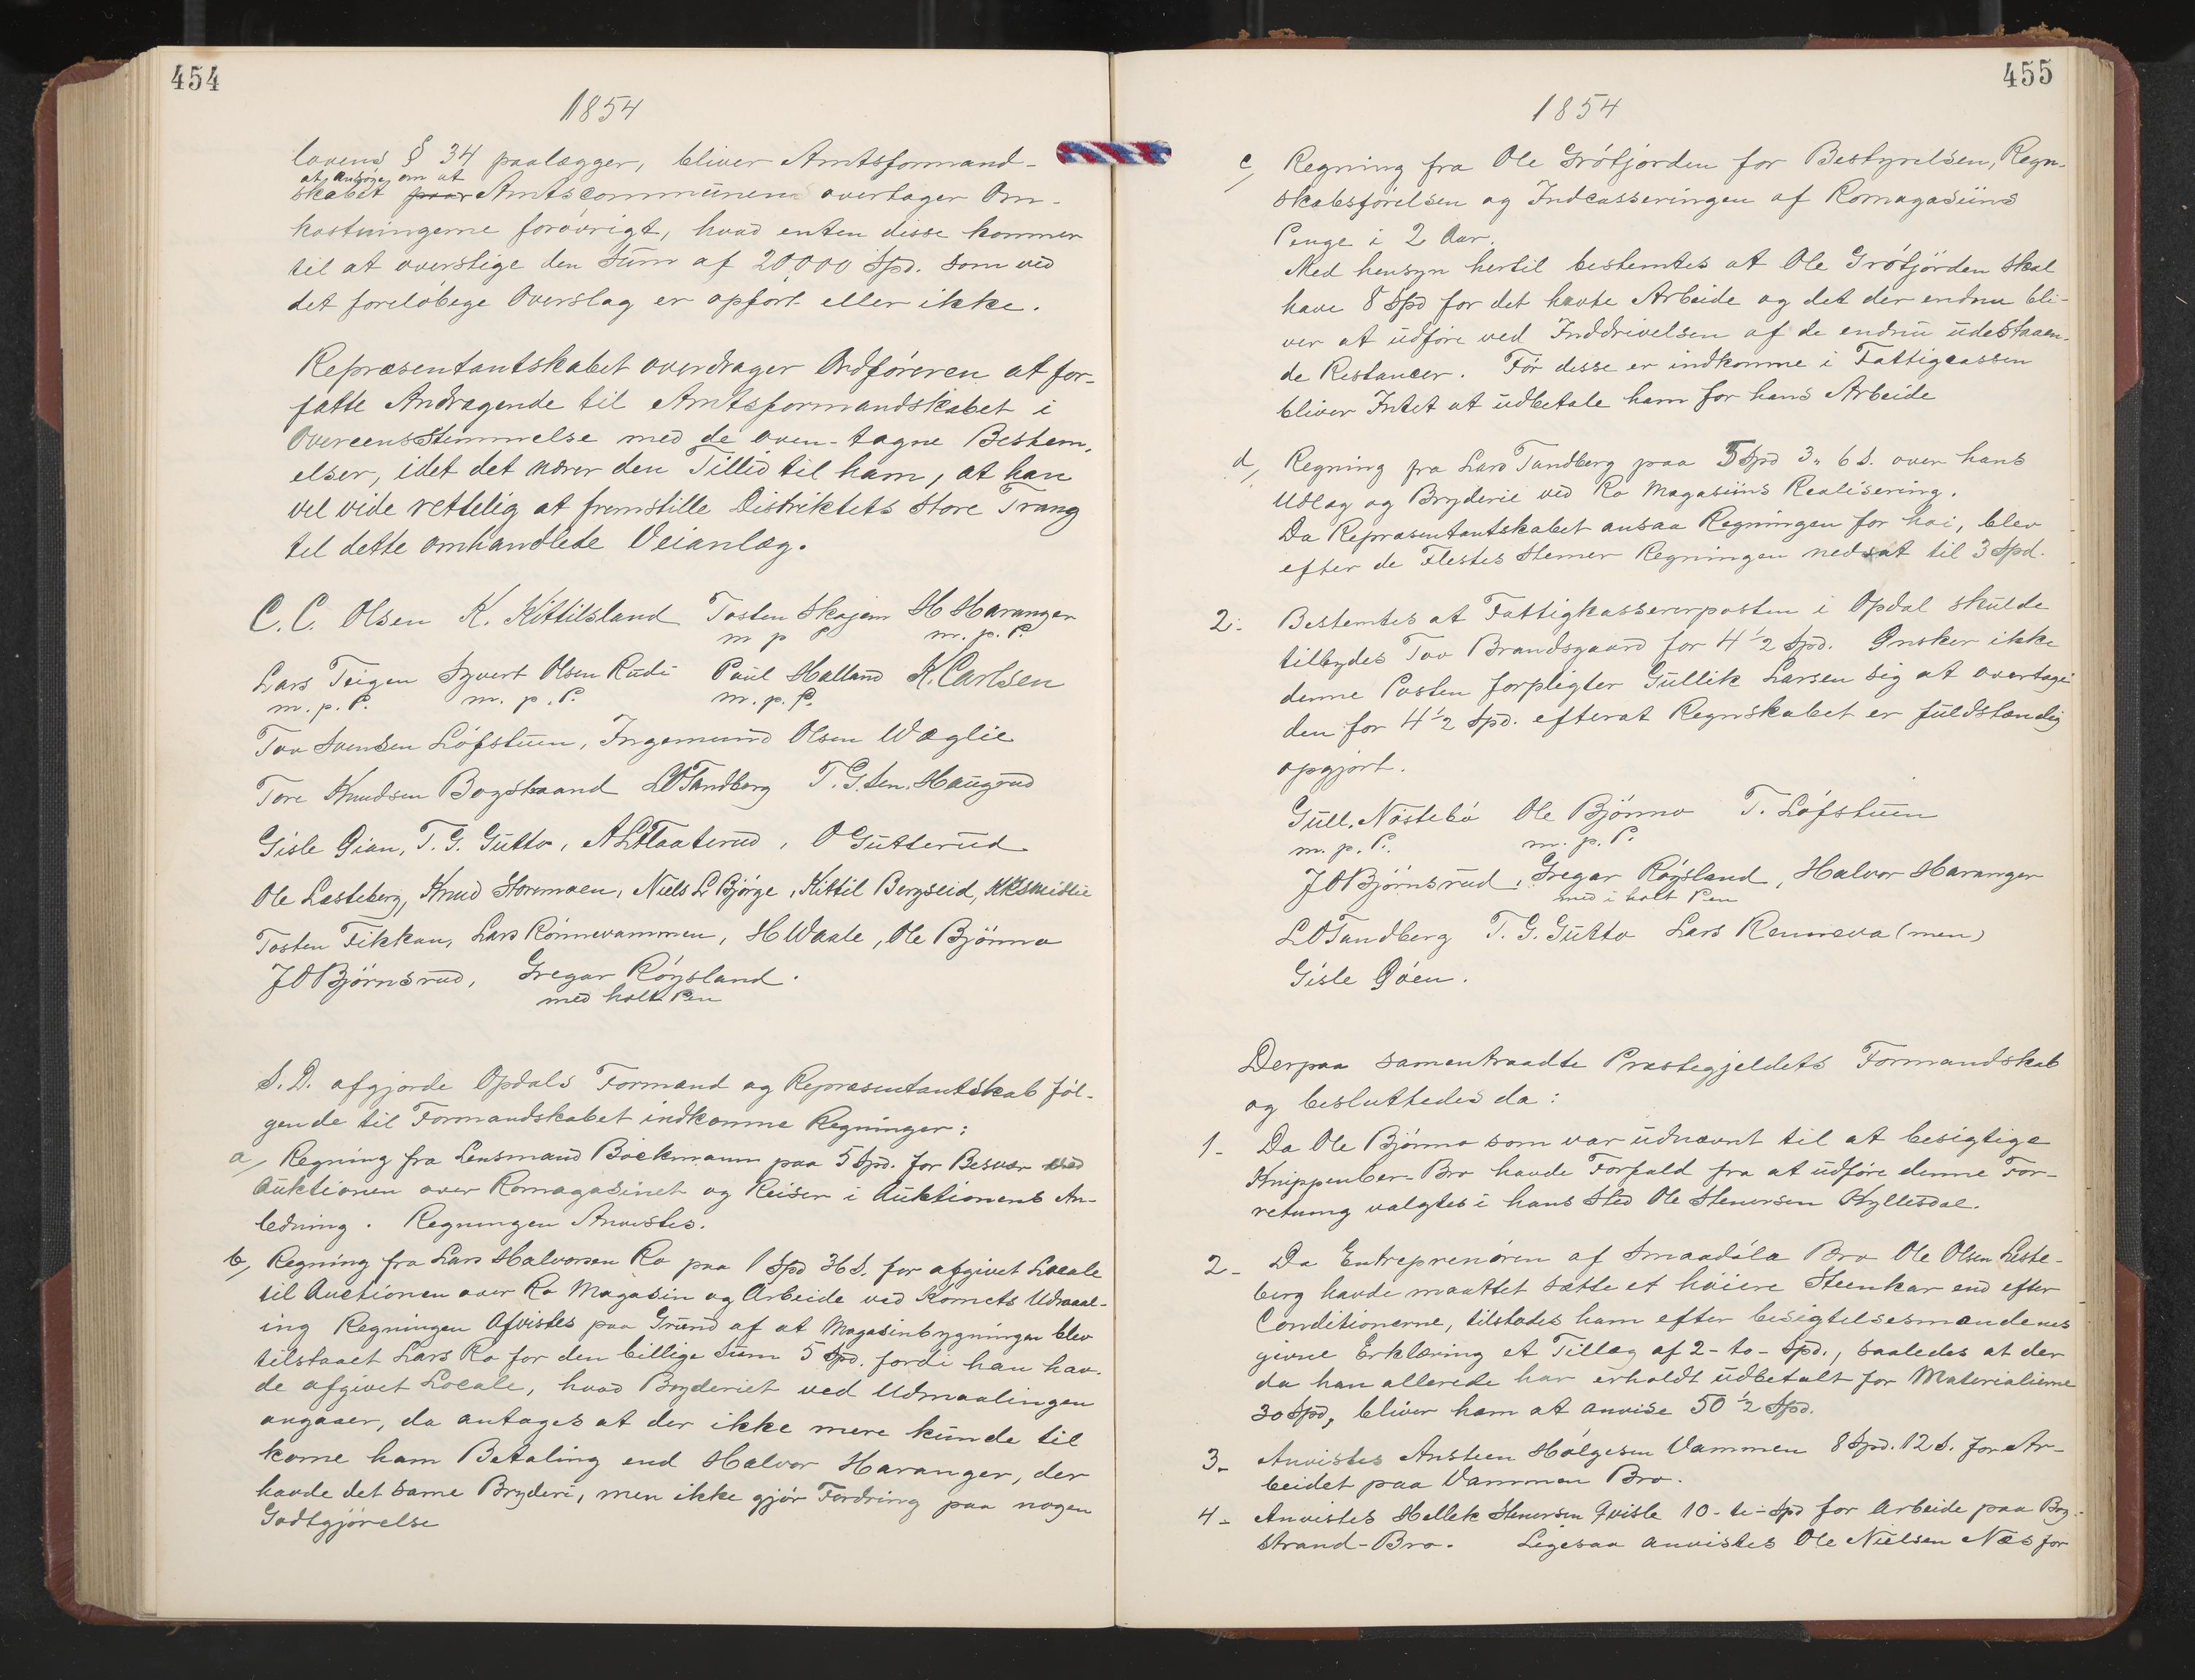 454
1854
lovens § 34 paalægger, bliver Amtsformand-
at ansøge om at
skabet paa Amtscommunen overtager Om-
kostningerne forøvrigt, hvad enten disse kommer
til at overstige den Sum af 20,000 Spd. som ved
det foreløbege Overslag er opført eller ikke.
Repræsentantskabet overdrager Ordføreren at for-
fatte Andragende til Amtsformandskabet i
Overeensstemmelse med de oven-tagne Bestem-
elser, idet det nærer den Tillid til ham, at han
vel vide rettelig at fremstille Distriktets store Trang
til dette omhandlede Veianlæg.
C. C. Olsen K. Kittilsland Tosten Skajem H Haranger
m p P m. p. P.
Lars Teigen Syvert Olsen Rudi Paul Halland K. Carlsen
m. p. P. m. p. P. m. p. P.
Tov Svendsen Løfstuen, Ingemund Olsen Wæglie
Tore Knudsen Bogstrand LOTandberg T. G.sen. Haugrud
Gisle Øian, T. G. Gutto, ALFlaaterud, O Gutterud
Ole Læsteberg, Knud Stormoen, Niels L Bjørge, Kittil Bergseid,
Tosten Fikkan, Lars Rønnevammen, H Waale, Ole Bjønno
JOBjørnsrud, Gregar Røysland.
med holt Pen
S. D. afgjorde Opdals Formænd og Repræsentantskab føl-
gende til Formandskabet indkomne Regninger:
a/ Regning fra Lensmand Böckmann paa 5 Spd. for Besvær ved
Auktionen over Romagasinet og Reiser i Auktionens An-
ledning. Regningen Anvistes.
b/ Regning fra Lars Halvorsen Ro paa 1 Spd 36 S. for afgivet Locale
til Auctionen over Ro Magasin og Arbeide ved Kornets Udmaal-
ing Regningen Afvistes paa Grund af at Magasinbygningen blev
tilstaaet Lars Ro for den billige Sum 5 Spd. fordi han hav-
de afgivet Locale, hvad Bryderiet ved Udmaalingen
angaaer, da antages at der ikke mere kunde til
kome ham Betaling end Halvor Haranger, der
havde det same Bryderi, men ikke gjør Fordring paa nogen
Godtgjørelse
455
1854
c/ Regning fra Ole Grötjorden for Bestyrelsen, Regn-
skabsførelsen og Indcasseringen af Romagasiins
Penge i 2 Aar.
Med hensyn hertil bestemtes at Ole Grøtjørden skal
have 8 Spd for det havte Arbeide og det der endnu bli-
ver at udføre ved Inddrivelsen af de endnu udestaaen-
de Restancer. Før disse er indkomne i Fattigcassen
bliver Intet at udbetale ham for hans Arbeide
d/ Regning fra Lars Tandberg paa 5 Spd 3„ 6 S. over hans
Udlæg og Bryderie ved Ro Magasiins Realisering.
Da Repræsentantskabet ansaa Regningen for høi, blev
efter de Flestes Stemer Regningen nedsat til 3 Spd.
2. Bestemtes at Fattigkassererposten i Opdal skulde
tilbydes Tov Brandsgaard for 4 1/2 Spd. Ønsker ikke
denne Posten forpligter Gullik Larsen sig at overtage
den for 4 1/2 Spd. efterat Regnskabet er fuldstændig
opgjort.
Gull. Nøstebø Ole Bjönno T. Løfstuen
m. p. P. m. p. P.
JOBjørnsrud, Gregar Røysland, Halvor Haranger
med i holt Pen
LOTandberg T. G. Gutto Lars Renneva(men)
Gisle Øöen.
Derpaa samentraadte Præstegjeldets Formandskab
og besluttedes da:
1- Da Ole Bjønno som var udnævnt til at besigtige
Knippenber-Bro havde Forfald fra at udføre denne For-
retning valgtes i hans Sted Ole Stenersen Hyllesdal.
2- Da Entreprenøren af Smaadøla Bro Ole Olsen Leste-
berg havde maattet sætte et høiere Steenkar end efter
Conditionerne, tilstodes ham efter besigtelsesmændenes
givne Erklæring et Tillæg af 2- to- Spd., saaledes at der
da han allerede har erholdt udbetalt for Materialierne
30 Spd, bliver ham at anvise 50 1/2 Spd.
3- Anvistes Ansteen Hølgesen Vammen 8 Spd. 12 S. for Ar-
beidet paa Vammen Bro.
4- Anvistes Hellek Stenersen Qvisle 10- ti- Spd for Arbeide paa Bog-
strand-Bro. Ligesaa anvistes Ole Nielsen Næs for